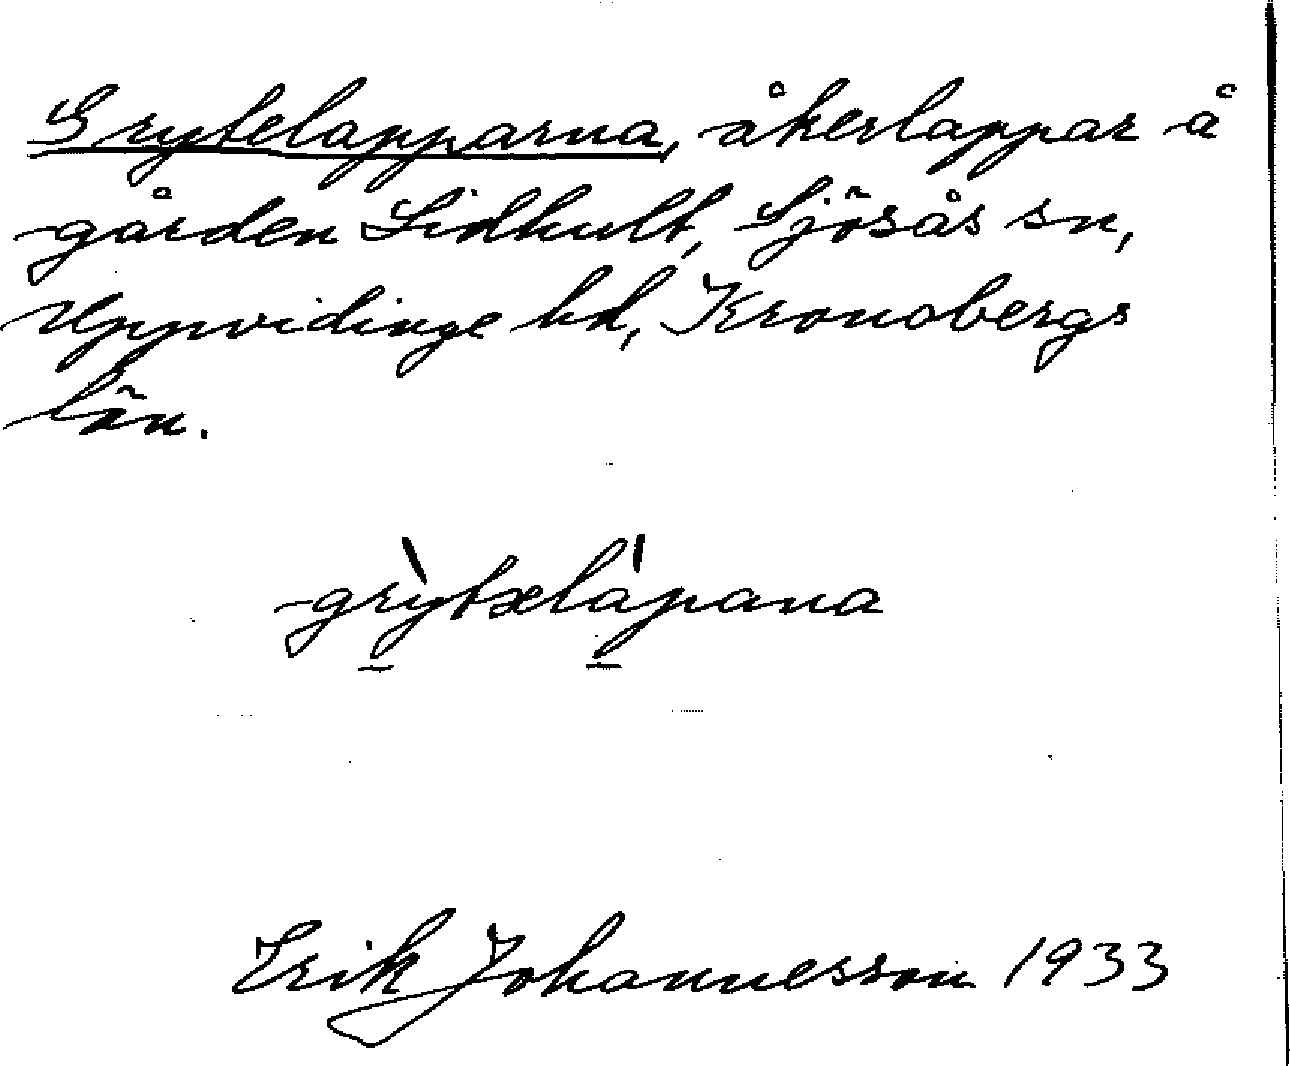 Grytelapparna, åkerlappar å
gården Lidhult, Sjösås sn,
Uppvidinge hd, Kronobergs
län.
grỳtelápana
Erik Johannesson 1933